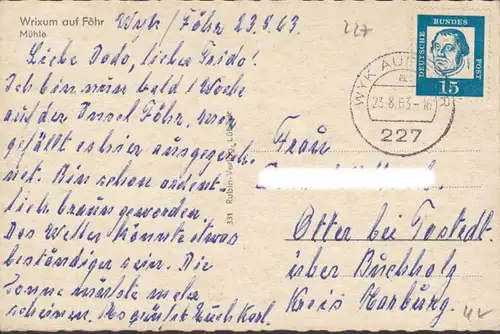 Wrixum auf Föhr
Mühle
Wyk/Föhr 23.8.63
227
Liebe Dodo, lieber Frido!
Ich bin nun bald 1 Woche
auf der Insel Föhr, mir
gefällt es hier ausgezeich
net. Bin schon ordent-
lich braun geworden.
Das Wetter könnte etwas
beständiger sein. Die
Sonne müßte mehr
scheinen. Karl.
331 Rubin-Verlag
DEUTSCHE BUNDES POST
15
WYK AUF
23.8.63-16
227
Frau
Otter bei Tostedt
über Buchholz
Kreis Harburg.